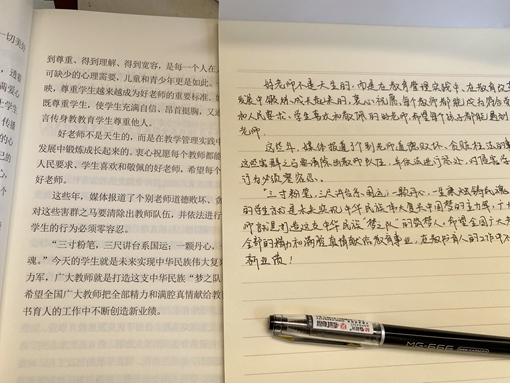 一切美好
到尊重、得到理解、得到宽容，是每一个人在人
可缺少的心理需要，儿童和青少年更是如此。
映，尊重学生越来越成为好老师的重要标准。
既尊重学生，使学生充满自信、昂首挺胸，又通
言传身教教育学生尊重他人。
好老师不是天生的，而是在教学管理实践中
发展中锻炼成长起来的。衷心祝愿每个教师都能
人民要求、学生喜欢和敬佩的好老师。希望每个
好老师。
这些年，媒体报道了个别老师道德败坏、贪
对这些害群之马要清除出教师队伍，并依法进行
学生的行为必须零容忍。
“三寸粉笔，三尺讲台系国运；一颗丹心，
魂。”今天的学生就是未来实现中华民族伟大复
力军，广大教师就是打造这支中华民族“梦之队
希望全国广大教师把全部精力和满腔真情献给教
书育人的工作中不断创造新业绩。
好老师不是天生的，而是在教育管理实践中、在教育改革
发展中锻炼成长起来的。衷心祝愿每个教师都能成为
和人民要求、学生喜欢和敬佩的好老师，希望每个孩子都能遇到
老师。
这些年，媒体报道了个别老师道德败坏、贪
这些害群之马要清除出教师队伍，并依法进行
行为必须零容忍。
“三寸粉笔，三尺讲台系国运；一颗丹心，一生秉烛铸民魂
的学生就是未来实现中华民族伟大复兴中国梦的主力军，广
师就是打造这支中华民族“梦之队”的筑梦人，希望全国广大
全部精力和满腔真情献给教育事业，在教书育人的工作中不
新业绩！
MG-666